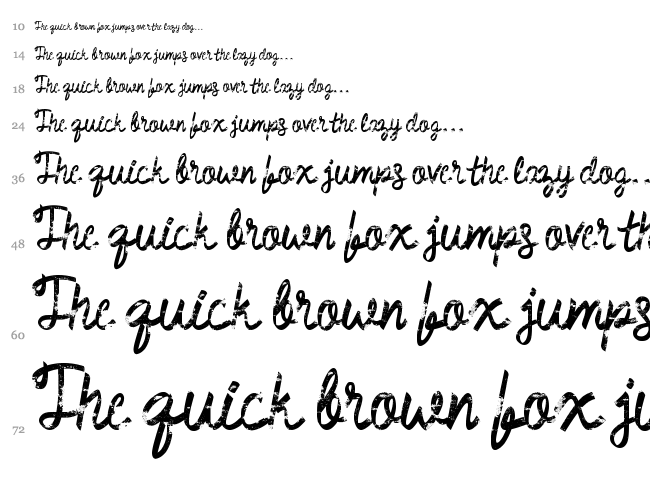 10 The quick brown fox jumps over the lazy dog...
14 The quick brown fox jumps over the lazy dog...
18 The quick brown fox jumps over the lazy dog...
24 The quick brown fox jumps over the lazy dog...
36 The quick brown fox jumps over the lazy dog..
48 The quick brown fox jumps over th
60 The quick brown fox jumps
72 The quick brown fox ju